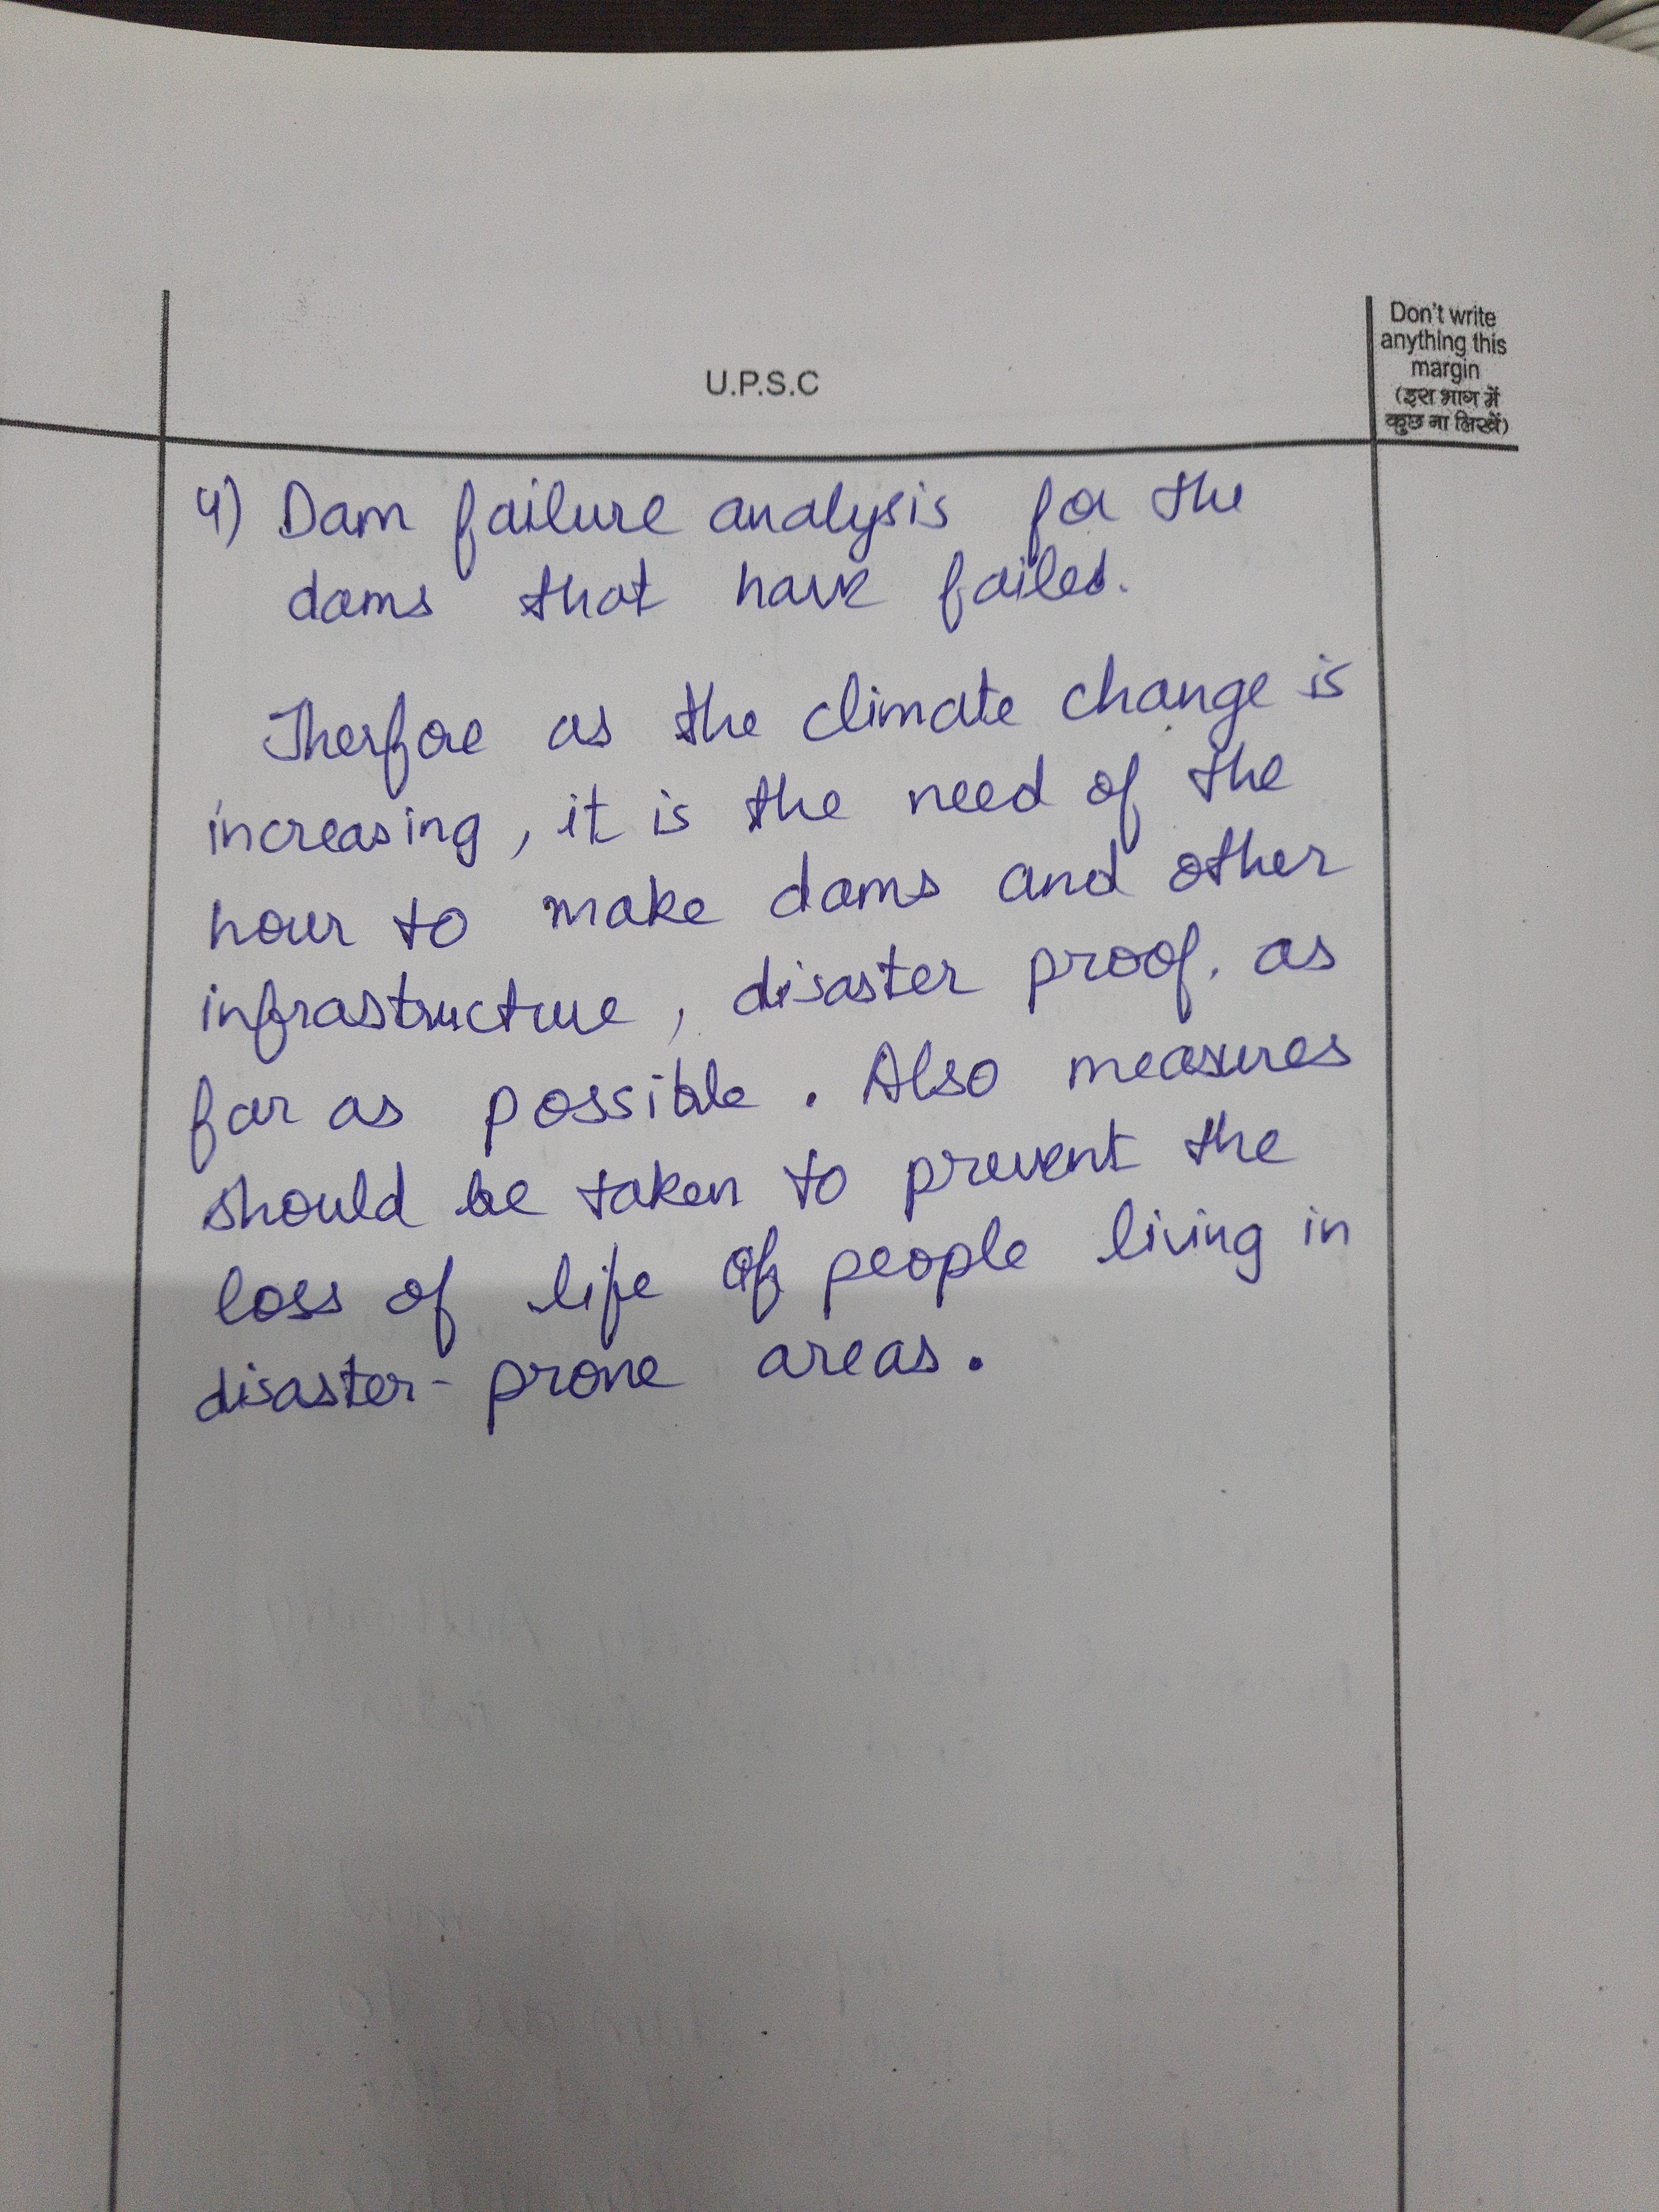 Don't write
anything this
margin
(इस भाग में
कुछ ना लिखें)
U.P.S.C
4) Dam failure analysis for the
dams that have failed.
Therfore as the climate change is
increasing, it is the need of the
hour to make dams and other
infrastructure, disaster proof. as
far as possible. Also measures
should be taken to prevent the
loss of life of people living in
disaster-prone areas.